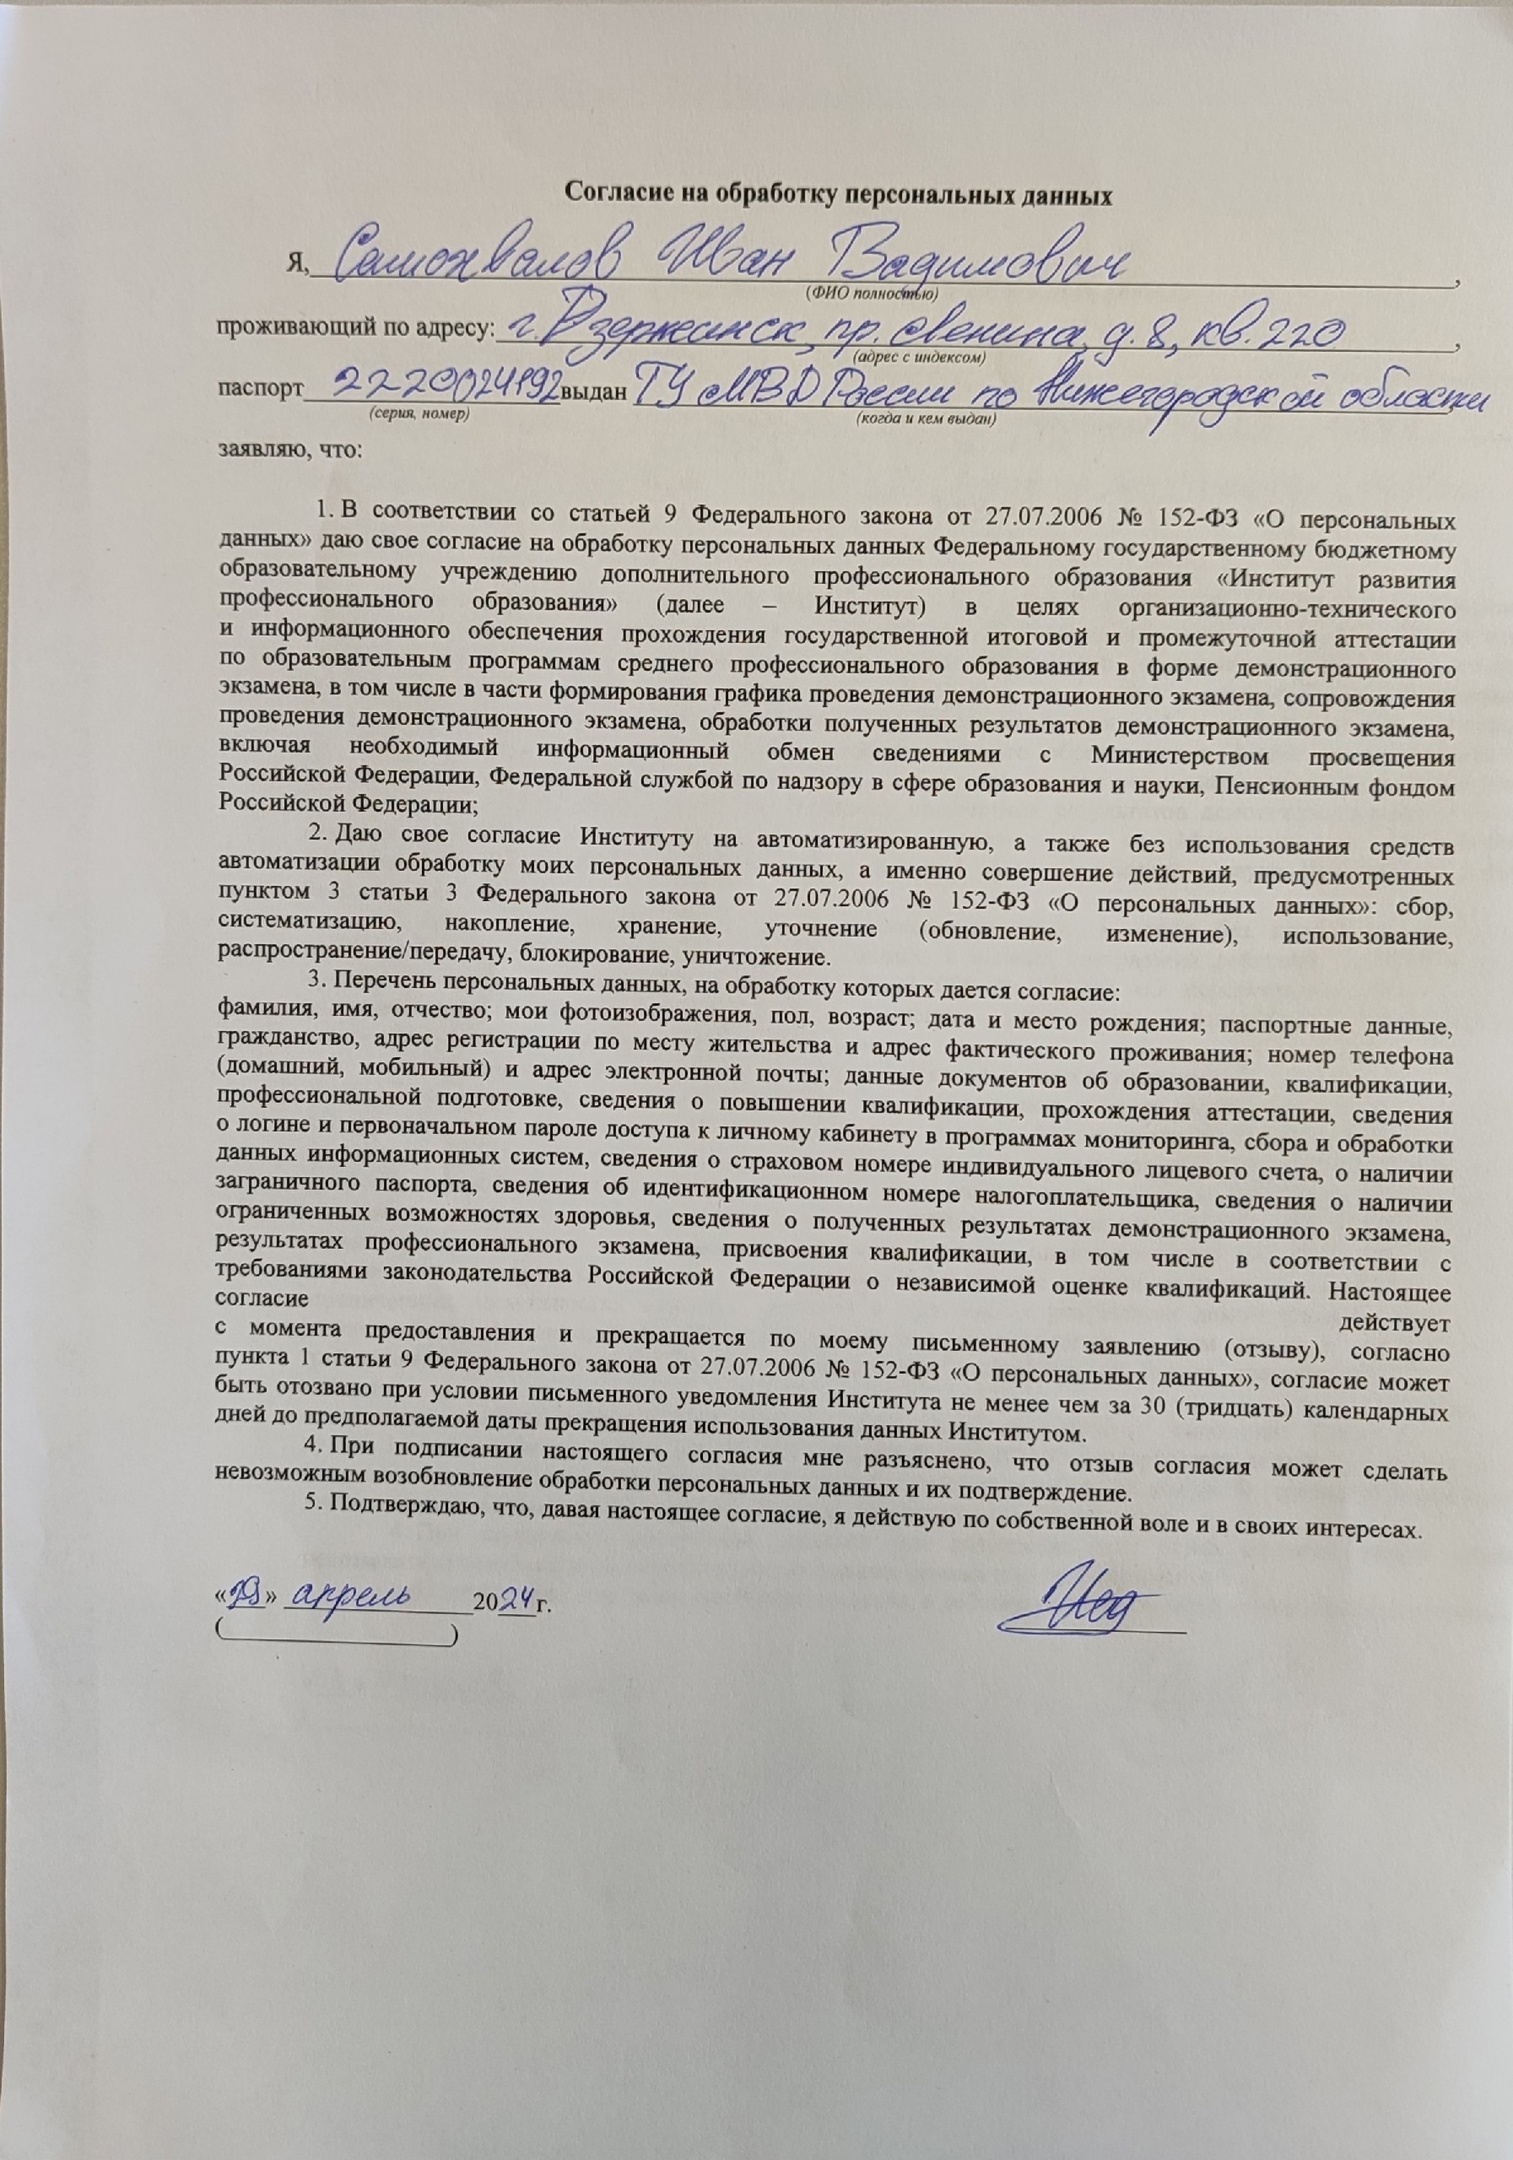 Согласие на обработку персональных данных
Я, Самохвалов Иван Вадимович,
(ФИО полностью)
проживающий по адресу: г. Дзержинск, пр. Ленина, д. 8, кв. 220,
(адрес с индексом)
паспорт 2220024192 выдан ГУ МВД России по Нижегородской области,
(серия, номер) (когда и кем выдан)
заявляю, что:
1. В соответствии со статьей 9 Федерального закона от 27.07.2006 № 152-ФЗ «О персональных
данных» даю свое согласие на обработку персональных данных Федеральному государственному бюджетному
образовательному учреждению дополнительного профессионального образования «Институт развития
профессионального образования» (далее – Институт) в целях организационно-технического
и информационного обеспечения прохождения государственной итоговой и промежуточной аттестации
по образовательным программам среднего профессионального образования в форме демонстрационного
экзамена, в том числе в части формирования графика проведения демонстрационного экзамена, сопровождения
проведения демонстрационного экзамена, обработки полученных результатов демонстрационного экзамена,
включая необходимый информационный обмен сведениями с Министерством просвещения
Российской Федерации, Федеральной службой по надзору в сфере образования и науки, Пенсионным фондом
Российской Федерации;
2. Даю свое согласие Институту на автоматизированную, а также без использования средств
автоматизации обработку моих персональных данных, а именно совершение действий, предусмотренных
пунктом 3 статьи 3 Федерального закона от 27.07.2006 № 152-ФЗ «О персональных данных»: сбор,
систематизацию, накопление, хранение, уточнение (обновление, изменение), использование,
распространение/передачу, блокирование, уничтожение.
3. Перечень персональных данных, на обработку которых дается согласие:
фамилия, имя, отчество; мои фотоизображения, пол, возраст; дата и место рождения; паспортные данные,
гражданство, адрес регистрации по месту жительства и адрес фактического проживания; номер телефона
(домашний, мобильный) и адрес электронной почты; данные документов об образовании, квалификации,
профессиональной подготовке, сведения о повышении квалификации, прохождения аттестации, сведения
о логине и первоначальном пароле доступа к личному кабинету в программах мониторинга, сбора и обработки
данных информационных систем, сведения о страховом номере индивидуального лицевого счета, о наличии
заграничного паспорта, сведения об идентификационном номере налогоплательщика, сведения о наличии
ограниченных возможностях здоровья, сведения о полученных результатах демонстрационного экзамена,
результатах профессионального экзамена, присвоения квалификации, в том числе в соответствии с
требованиями законодательства Российской Федерации о независимой оценке квалификаций. Настоящее
согласие действует
с момента предоставления и прекращается по моему письменному заявлению (отзыву), согласно
пункта 1 статьи 9 Федерального закона от 27.07.2006 № 152-ФЗ «О персональных данных», согласие может
быть отозвано при условии письменного уведомления Института не менее чем за 30 (тридцать) календарных
дней до предполагаемой даты прекращения использования данных Институтом.
4. При подписании настоящего согласия мне разъяснено, что отзыв согласия может сделать
невозможным возобновление обработки персональных данных и их подтверждение.
5. Подтверждаю, что, давая настоящее согласие, я действую по собственной воле и в своих интересах.
апрель 2024 г.